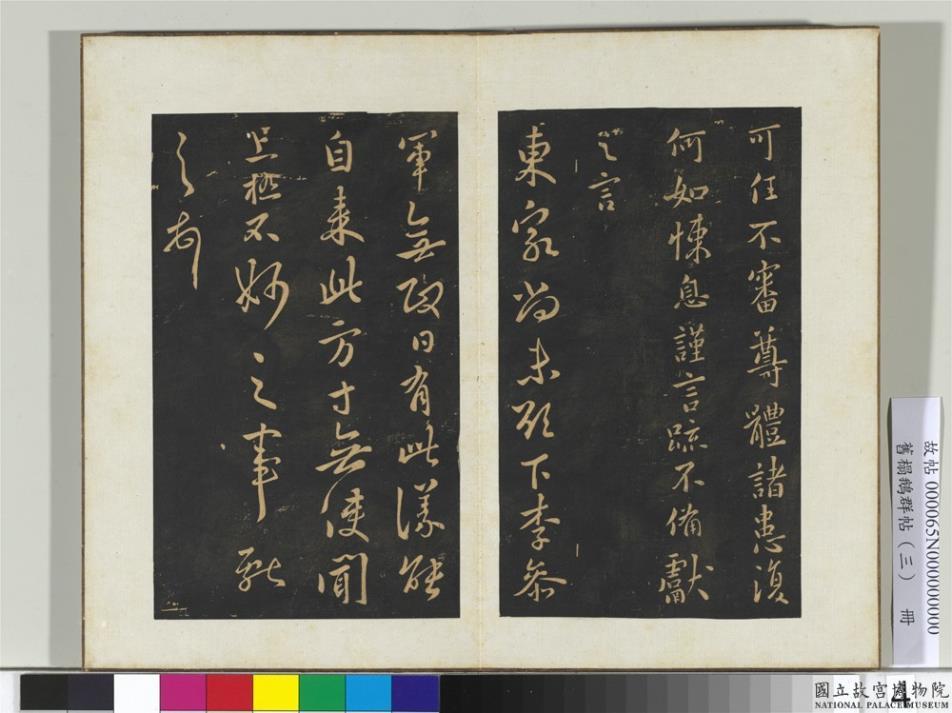 可任不審尊體諸患復
何如悚息謹言疏不備獻
之言
東家尚未 下李參
軍無政日有此 能
自 此方寸無使聞
 極不妙之之事獻
之 
故帖000065N000000000
舊榻鵝群帖(三) 冊
4
國立故宮博物院
NATIONAL PALACE MUSEUM